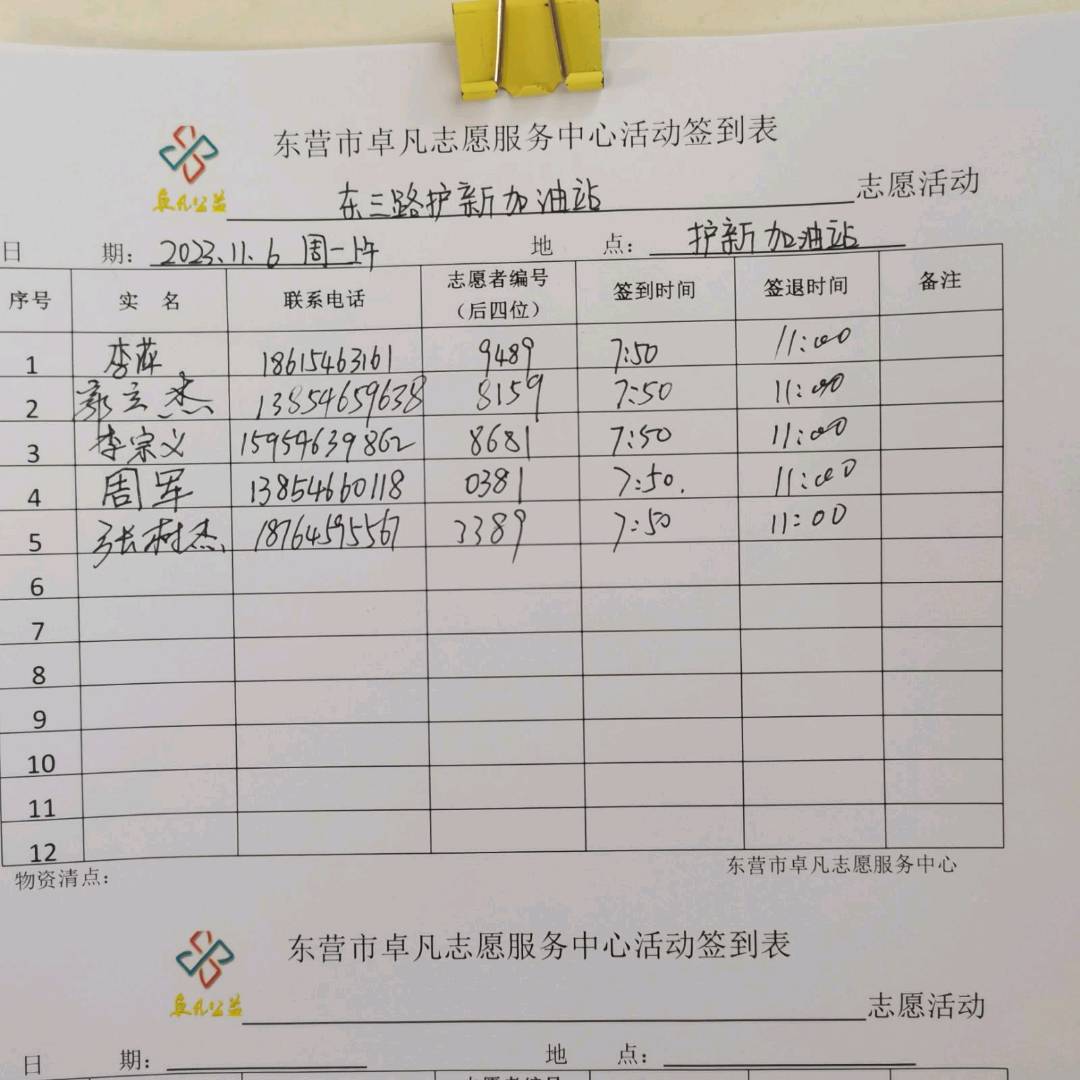 东营市卓凡志愿服务中心活动签到表
卓凡公益 东三路护新加油站 志愿活动
日 期：2023.11.6 周一上午 地 点：护新加油站
序号 实 名 联系电话 志愿者编号（后四位） 签到时间 签退时间 备注
1 李萍 18615463161 9489 7:50 11:00
2 郭立杰 13854659638 8159 7:50 11:00
3 李宗义 15954639862 8681 7:50 11:00
4 周军 13854660118 0381 7:50. 11:00
5 张树杰 18764595567 3389 7:50 11:00
6
7
8
9
10
11
12
物资清点： 东营市卓凡志愿服务中心
东营市卓凡志愿服务中心活动签到表
卓凡公益 志愿活动
日 期： 地 点：
志愿者编号